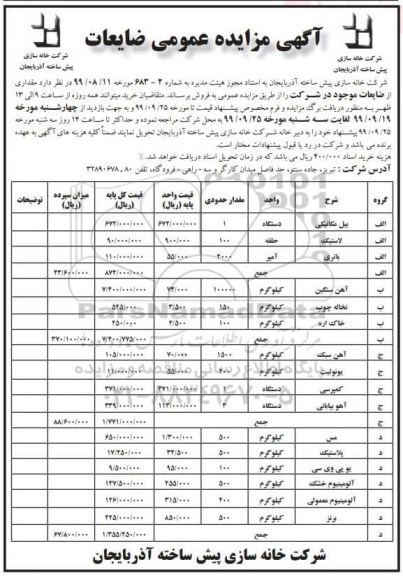 آگهی مزایده عمومی ضایعات
شرکت خانه سازی
پیش ساخته آذربایجان
شرکت خانه سازی
پیش ساخته آذربایجان
شرکت خانه سازی پیش ساخته آذربایجان به استناد مجوز هیئت مدیره به شماره ۲ - ۶۸۳ مورخه ۱۱/ ۰۸/ ۹۹ در نظر دارد مقداری
از ضایعات موجود در شرکت را از طریق مزایده عمومی به فروش برساند. متقاضیان خرید میتوانند همه روزه از ساعت ۹ الی ۱۳
ظهر به منظور دریافت برگ مزایده و فرم مخصوص پیشنهاد قیمت تا مورخه ۹۹/۰۹/۲۵ و به جهت بازدید از چهارشنبه مورخه
۹۹/۰۹/۱۹ لغایت سه شنبه مورخه ۹۹/۰۹/۲۵ به محل شرکت مراجعه نموده و حداکثر تا ساعت ۱۴ روز سه شنبه مورخه
۹۹/۰۹/۲۵ پیشنهاد خود را به دبیر خانه شرکت خانه سازی پیش ساخته آذربایجان تحویل نمایند ضمناً کلیه هزینه های آگهی به عهده
برنده می باشد و شرکت در رد یا قبول پیشنهادات مختار است.
هزینه خرید اسناد ۴۰۰/۰۰۰ ریال می باشد که در زمان تحویل اسناد دریافت خواهد شد.
آدرس شرکت : تبریز، جاده سنتو، حد فاصل میدان کارگر و سه - راهی - فرودگاه، تلفن ۸۰-۳۲۸۹۰۶۷۸
گروه شرح واحد مقدار حدودی قیمت واحد پایه (ریال) قیمت کل پایه (ریال) میزان سپرده (ریال) توضیحات
الف بیل مکانیکی دستگاه ۱ ۶۷۲/۰۰۰/۰۰۰ ۶۷۲/۰۰۰/۰۰۰
الف لاستیک حلقه ۱۰۰ ۹۰۰/۰۰۰ ۹۰/۰۰۰/۰۰۰
الف باتری آمپر ۲۰۰۰ ۵۵/۰۰۰ ۱۱۰/۰۰۰/۰۰۰
الف جمع ۸۷۲/۰۰۰/۰۰۰ ۴۳/۶۰۰/۰۰۰
ب آهن سنگین کیلوگرم ۱۰۰۰۰۰ ۷۴/۰۰۰ ۷/۴۰۰/۰۰۰/۰۰۰
ب نخاله چوب کیلوگرم ۱۵۰ ۳/۵۰۰ ۵۲۵/۰۰۰
ب خاک اره کیلوگرم ۱۰۰ ۲/۵۰۰ ۲۵۰/۰۰۰
ب جمع ۷/۴۰۰/۷۷۵/۰۰۰ ۳۷۰/۱۰۰/۰۰۰
ج آهن سبک کیلوگرم ۱۵۰۰ ۷۰/۰۰۰ ۱۰۵/۰۰۰/۰۰۰
ج یونولیت کیلوگرم ۲۰۰ ۵۵/۰۰۰ ۱۱/۰۰۰/۰۰۰
ج کمپرسی دستگاه ۱ ۳۷۱/۰۰۰/۰۰۰ ۳۷۱/۰۰۰/۰۰۰
ج آهو بیابانی دستگاه ۳ ۱۱۳/۰۰۰/۰۰۰ ۳۳۹/۰۰۰/۰۰۰
ج جمع ۱/۷۷۱/۰۰۰/۰۰۰ ۸۸/۶۰۰/۰۰۰
د مس کیلوگرم ۵۰۰ ۱/۳۰۰/۰۰۰ ۶۵۰/۰۰۰/۰۰۰
د پلاستیک کیلوگرم ۵۰۰ ۳۴/۵۰۰ ۱۷/۲۵۰/۰۰۰
د یو پی وی سی کیلوگرم ۱۰۰ ۹۵/۰۰۰ ۹/۵۰۰/۰۰۰
د آلومینیوم خشک کیلوگرم ۵۰۰ ۲۵۵/۰۰۰ ۱۲۷/۵۰۰/۰۰۰
د آلومینیوم معمولی کیلوگرم ۴۰۰ ۳۱۵/۰۰۰ ۱۲۶/۰۰۰/۰۰۰
د برنز کیلوگرم ۵۰۰ ۸۵۰/۰۰۰ ۴۲۵/۰۰۰/۰۰۰
د جمع ۱/۳۵۵/۲۵۰/۰۰۰ ۶۷/۸۰۰/۰۰۰
شرکت خانه سازی پیش ساخته آذربایجان
ParsNamadData
پایگاه اطلاع رسانی مناقصه و مزایده
۰۲۱-۸۸۳۴۹۶۷۰-۵